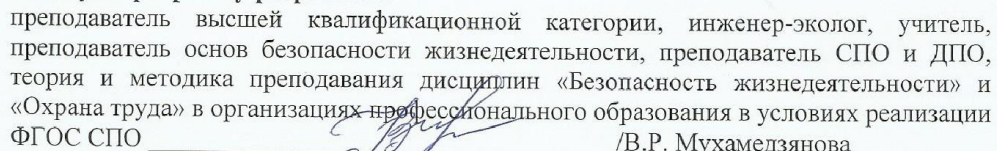 преподаватель высшей квалификационной категории, инженер-эколог, учитель,
преподаватель основ безопасности жизнедеятельности, преподаватель СПО и ДПО,
теория и методика преподавания дисциплин «Безопасность жизнедеятельности» и
«Охрана труда» в организациях профессионального образования в условиях реализации
ФГОС СПО /В.Р. Мухамедзянова